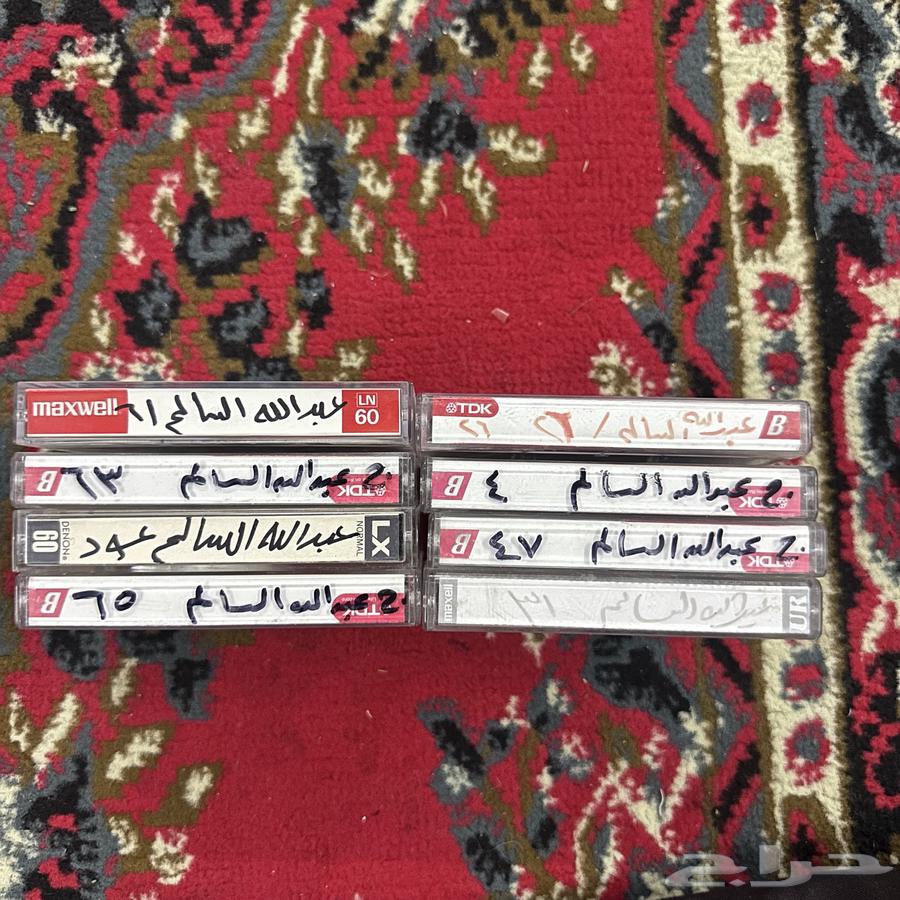 maxwell عبدالله السالم ٢١ LN 60
B ٦٣ عبدالله السالم ج TDK
DENON 60 عبدالله السالم عود NORMAL LX
B ٦٥ عبدالله السالم ج TDK
TDK عبدالله السالم / ٢٦ B
B ٤ عبدالله السالم ج TDK
B ٤٧ عبدالله السالم ج TDK
maxell عبدالله السالم ٣١ UR
حراج